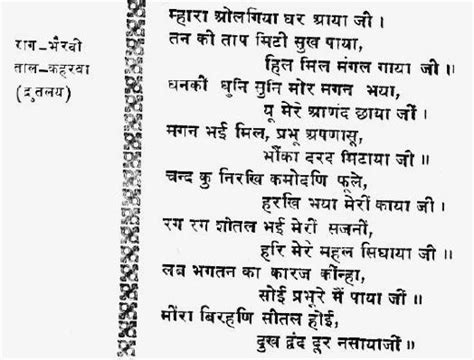 राग-भैरवी
ताल-कहरवा
(द्रुतलय)
म्हारा ओलगिया घर आया जी।
तन की ताप मिटी सुख पाया,
हिल मिल मंगल गाया जी॥
धनकी धुनि सुनि मोर मगन भया,
यू मेरे आणंद छाया जी।
मगन भई मिल, प्रभू अपणासू,
भौंका दरद मिटाया जी॥
चन्द कु निरखि कमोदणि फूले,
हरखि भया मेरी काया जी।
रग रग शीतल भई मेरी सजनीं,
हरि मेरे महल सिधाया जी॥
लब भगतन का कारज कीन्हा,
सोई प्रभूरे मैं पाया जीं॥
मींरा बिरहणि सीतल होई,
दुख द्वंद दूर नसायाजीं॥